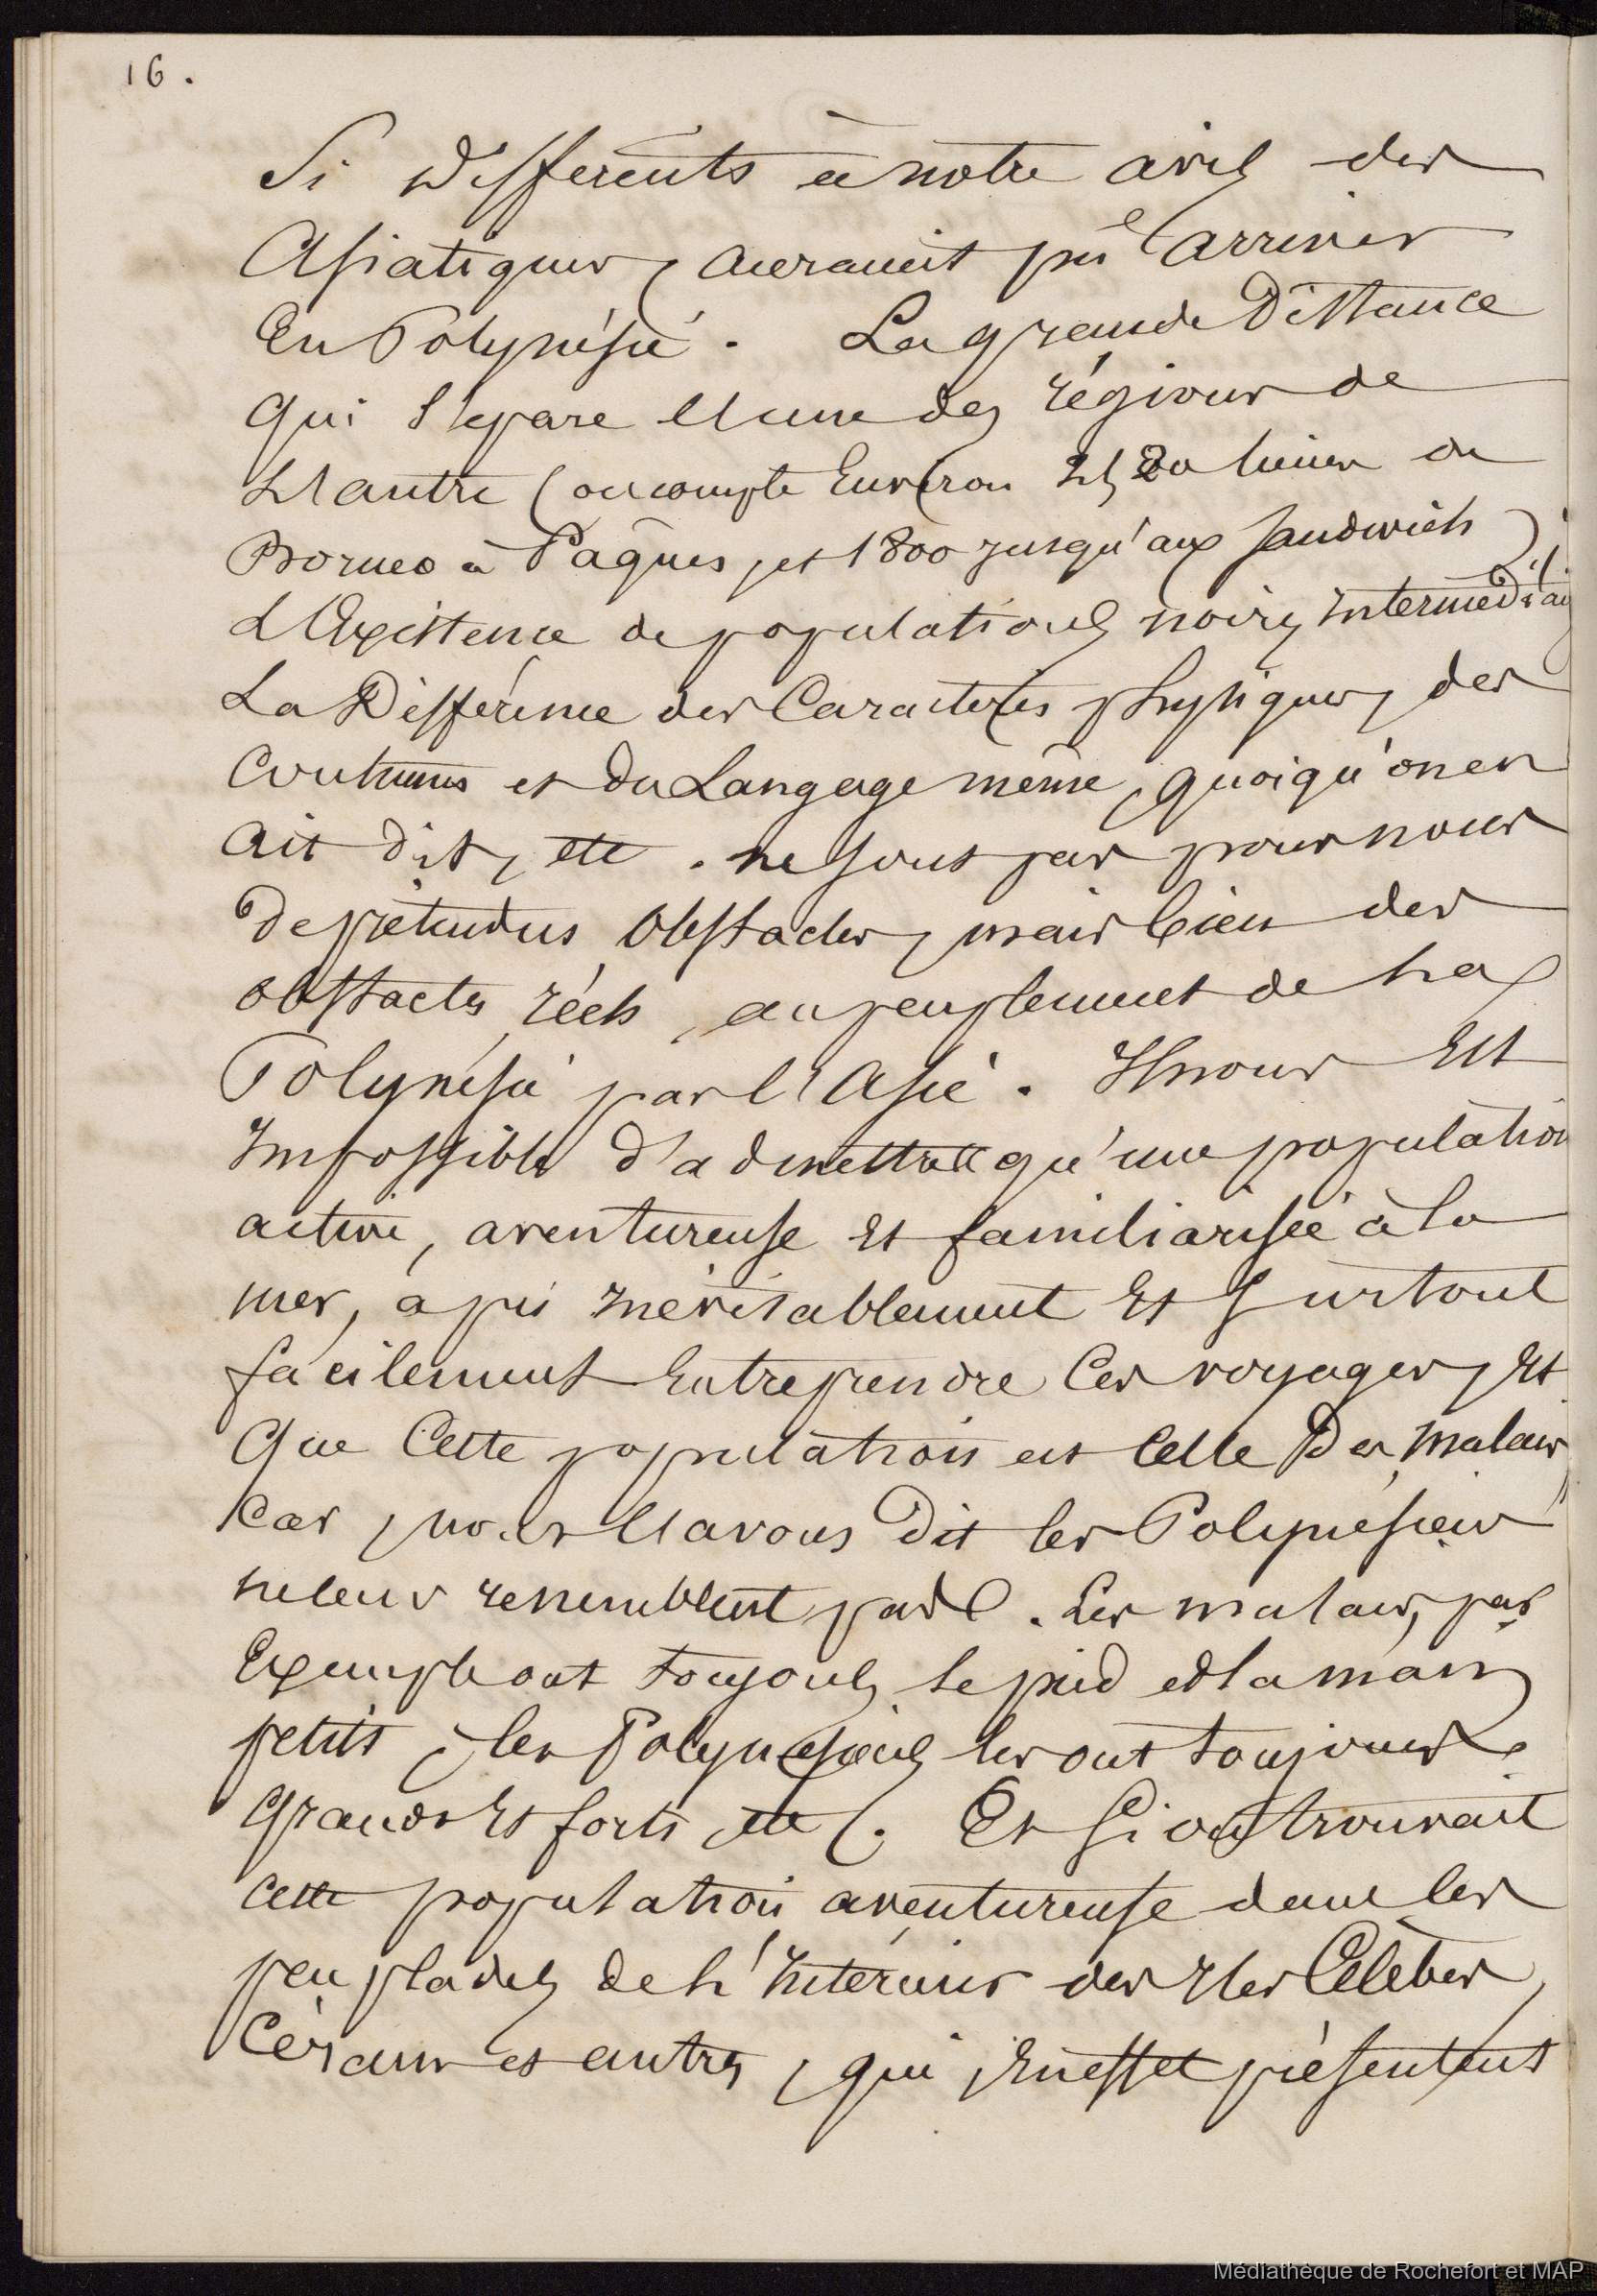 16.
Si differents à notre avis des
Asiatiques, auraient pû arriver
En Polynésie. La grande Distance
qui sépare l'une des régions de
L'autre (on compte Environ 2,500 lieues de
Borneo à Pâques, et 1800 jusqu'aux Sandwich)
L'Existence de populations noires intermédiai
La Différence des Caractères physiques, des
Coutumes et du Langage même, quoiqu'on en
Ait dit, etc. ne sont pas pour nous
De prétendus Obstacles, mais bien des
obstacles réels, au peuplement de la
Polynésie par l'Asie. Il nous Est
Impossible d'admettre qu'une population
active, aventureuse Et familiarisée à la
mer, a pu inévitablement Et Surtout
facilement Entreprendre Ces voyages, Et
Que Cette population est Celle Des Malais
Car, nous l'avons Dit les Polynésiens
ne leur ressemblent pas. Les malais, par
Exemple ont toujours le pied et la main
petits, les Polynésiens les ont toujours
Grands Et forts, etc. Et Si on trouvait
cette population aventureuse dans les
peuplades de l'Intérieur des Iles Célèbes,
Céram et autres, qui, En effet présentent
Médiathèque de Rochefort et MAP